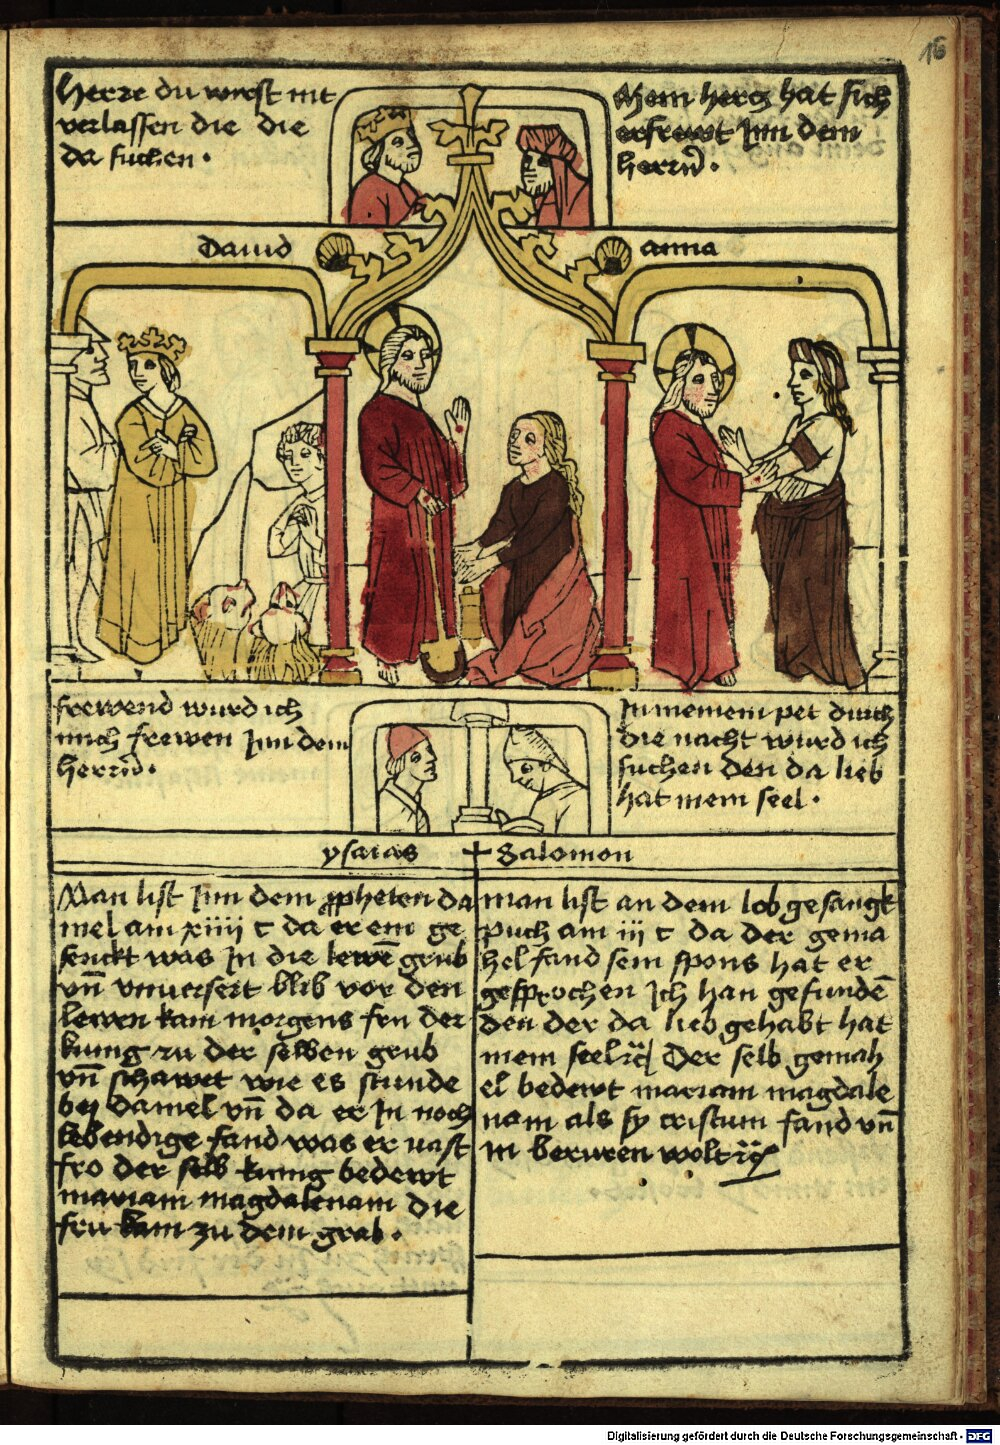 16
Herre du wirst nit
verlassen die die
da suchen .
Mein hercz hat sich
erfrewt Inn dem
herrn̄ .
Dauid
anna
frewend wurd ich
mich frewen Inn dem
herrn̄ .
In meinem pet durch
die nacht wurd ich
suchen den da lieb
hat mein seel .
ysaias + Salomon
Man list Inn dem propheten da
niel am xiiii c da er ein ge
senckt was In die lewē grub
vn̄ vnuersert blib vor den
lewen kam morgens fru der
kunig zu der selben grub
vn̄ schawet wie es stunde
bej daniel vn̄ da er In noch
lebendige fand was er vast
fro der selb kunig bedewt
mariam magdalenam die
fru kam zu dem grab .
man list an dem lobgesangk
puch am iii c da der gema
hel fand sein spons hat er
gesprochen Ich han gefundē
den der da lieb gehabt hat
mein seel Der selb gemah
el bedewt mariam magdale
nam als sy cristum fand vn̄
in beruren wolt
Digitalisierung gefördert durch die Deutsche Forschungsgemeinschaft - DFG